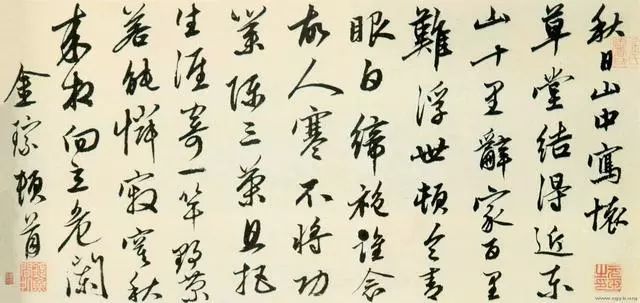 秋日山中寫懷
草堂結得近東
山十里辭家百里
難浮世頓令青
眼白綈袍誰念
故人寒不將功
業陳三策且把
生涯寄一竿野
若能憐寂寞秋
來相向立危闌
金琮頓首